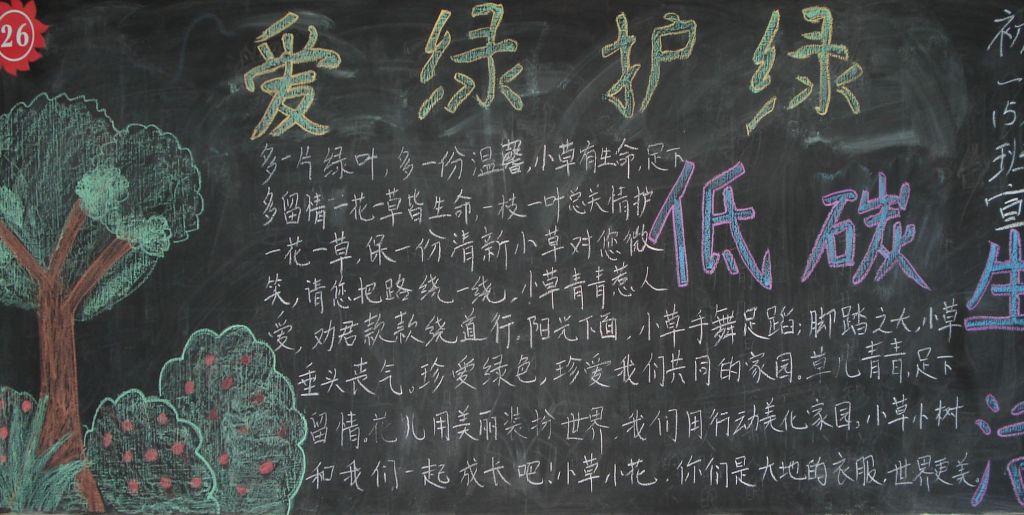 26
爱绿护绿
初一15班宣
低碳
生
多一片绿叶,多一份温馨,小草有生命,足下
多留情一花一草皆生命,一枝一叶总关情护
一花一草,保一份清新小草对您微
笑,请您把路绕一绕,小草青青惹人
爱,劝君款款绕道行,阳光下面,小草手舞足蹈,脚踏之大,小草
垂头丧气,珍爱绿色,珍爱我们共同的家园。草儿青青,足下
留情,花儿用美丽装扮世界,我们用行动美化家园,小草小树
和我们一起成长吧!小草小花,你们是大地的衣服,世界更美。